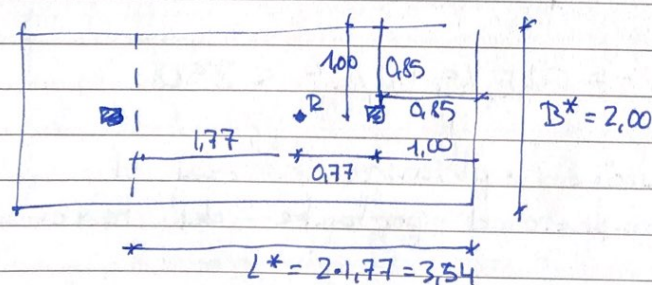 1,00
0,85
R
0,85
B* = 2,00
1,77
1,00
0,77
L* = 2·1,77 = 3,54